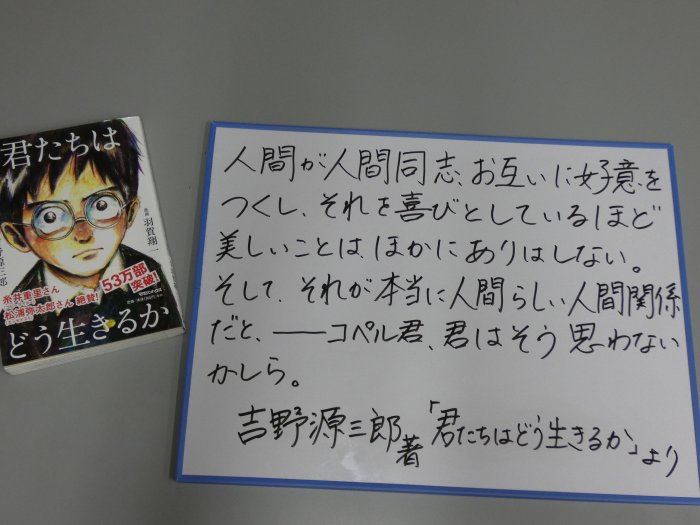 君たちは
漫画 羽賀翔一
野源三郎
糸井重里さん
松浦弥太郎さん 絶賛!
53万部
突破!
どう生きるか
人間が人間同志、お互いに好意を
つくし、それを喜びとしているほど
美しいことは、ほかにありはしない。
そして、それが本当に人間らしい人間関係
だと、――コペル君、君はそう思わない
かしら。
吉野源三郎著「君たちはどう生きるか」より